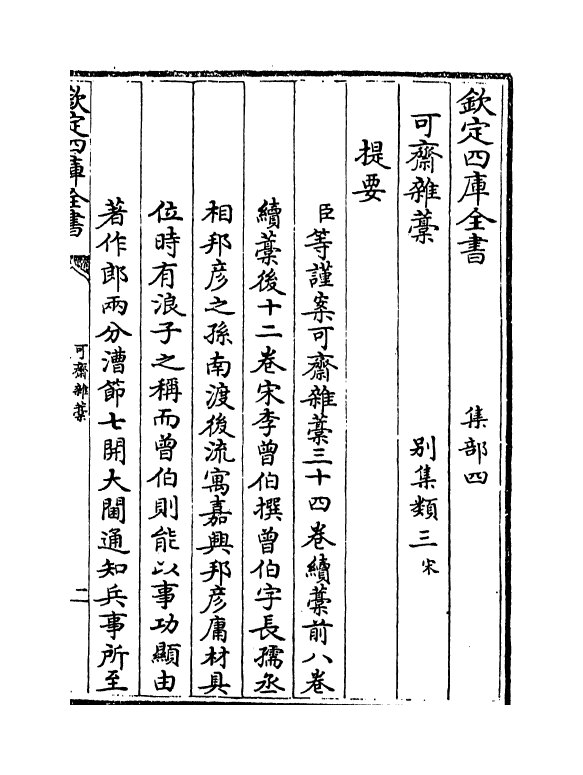 欽定四庫全書　集部四
可齋雜藁　別集類三宋
提要
臣等謹案可齋雜藁三十四卷續藁前八卷
續藁後十二卷宋李曾伯撰曾伯字長孺丞
相邦彦之孫南渡後流寓嘉興邦彦庸材具
位時有浪子之稱而曾伯則能以事功顯由
著作郎兩分漕節七開大閫通知兵事所至
欽定四庫全書　可齋雜藁　二